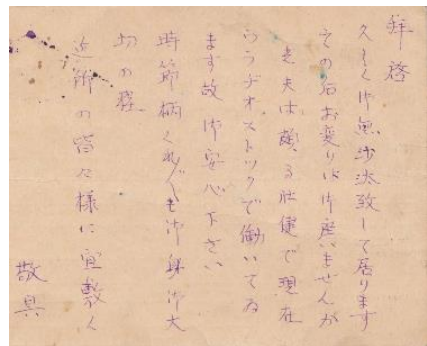 拝啓
久しく御無沙汰致して居ります
その后お変りは御座いませんか
元夫は頗る壮健で現在
ウラヂオストックで働いてゐ
ます故御安心下さい
時節柄くれ〲も御身御大
切の程
近所の皆々様に宜敷く
敬具